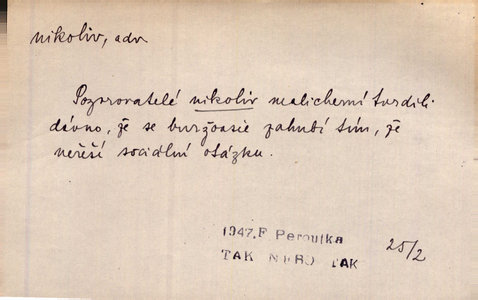 nikoliv, adv.
Pozorovatelé nikoliv malicherní tvrdili
dávno, že se buržoasie zahubí tím, že
neřeší sociální otázku.
1947. F Peroutka
TAK NEBO TAK
25/2